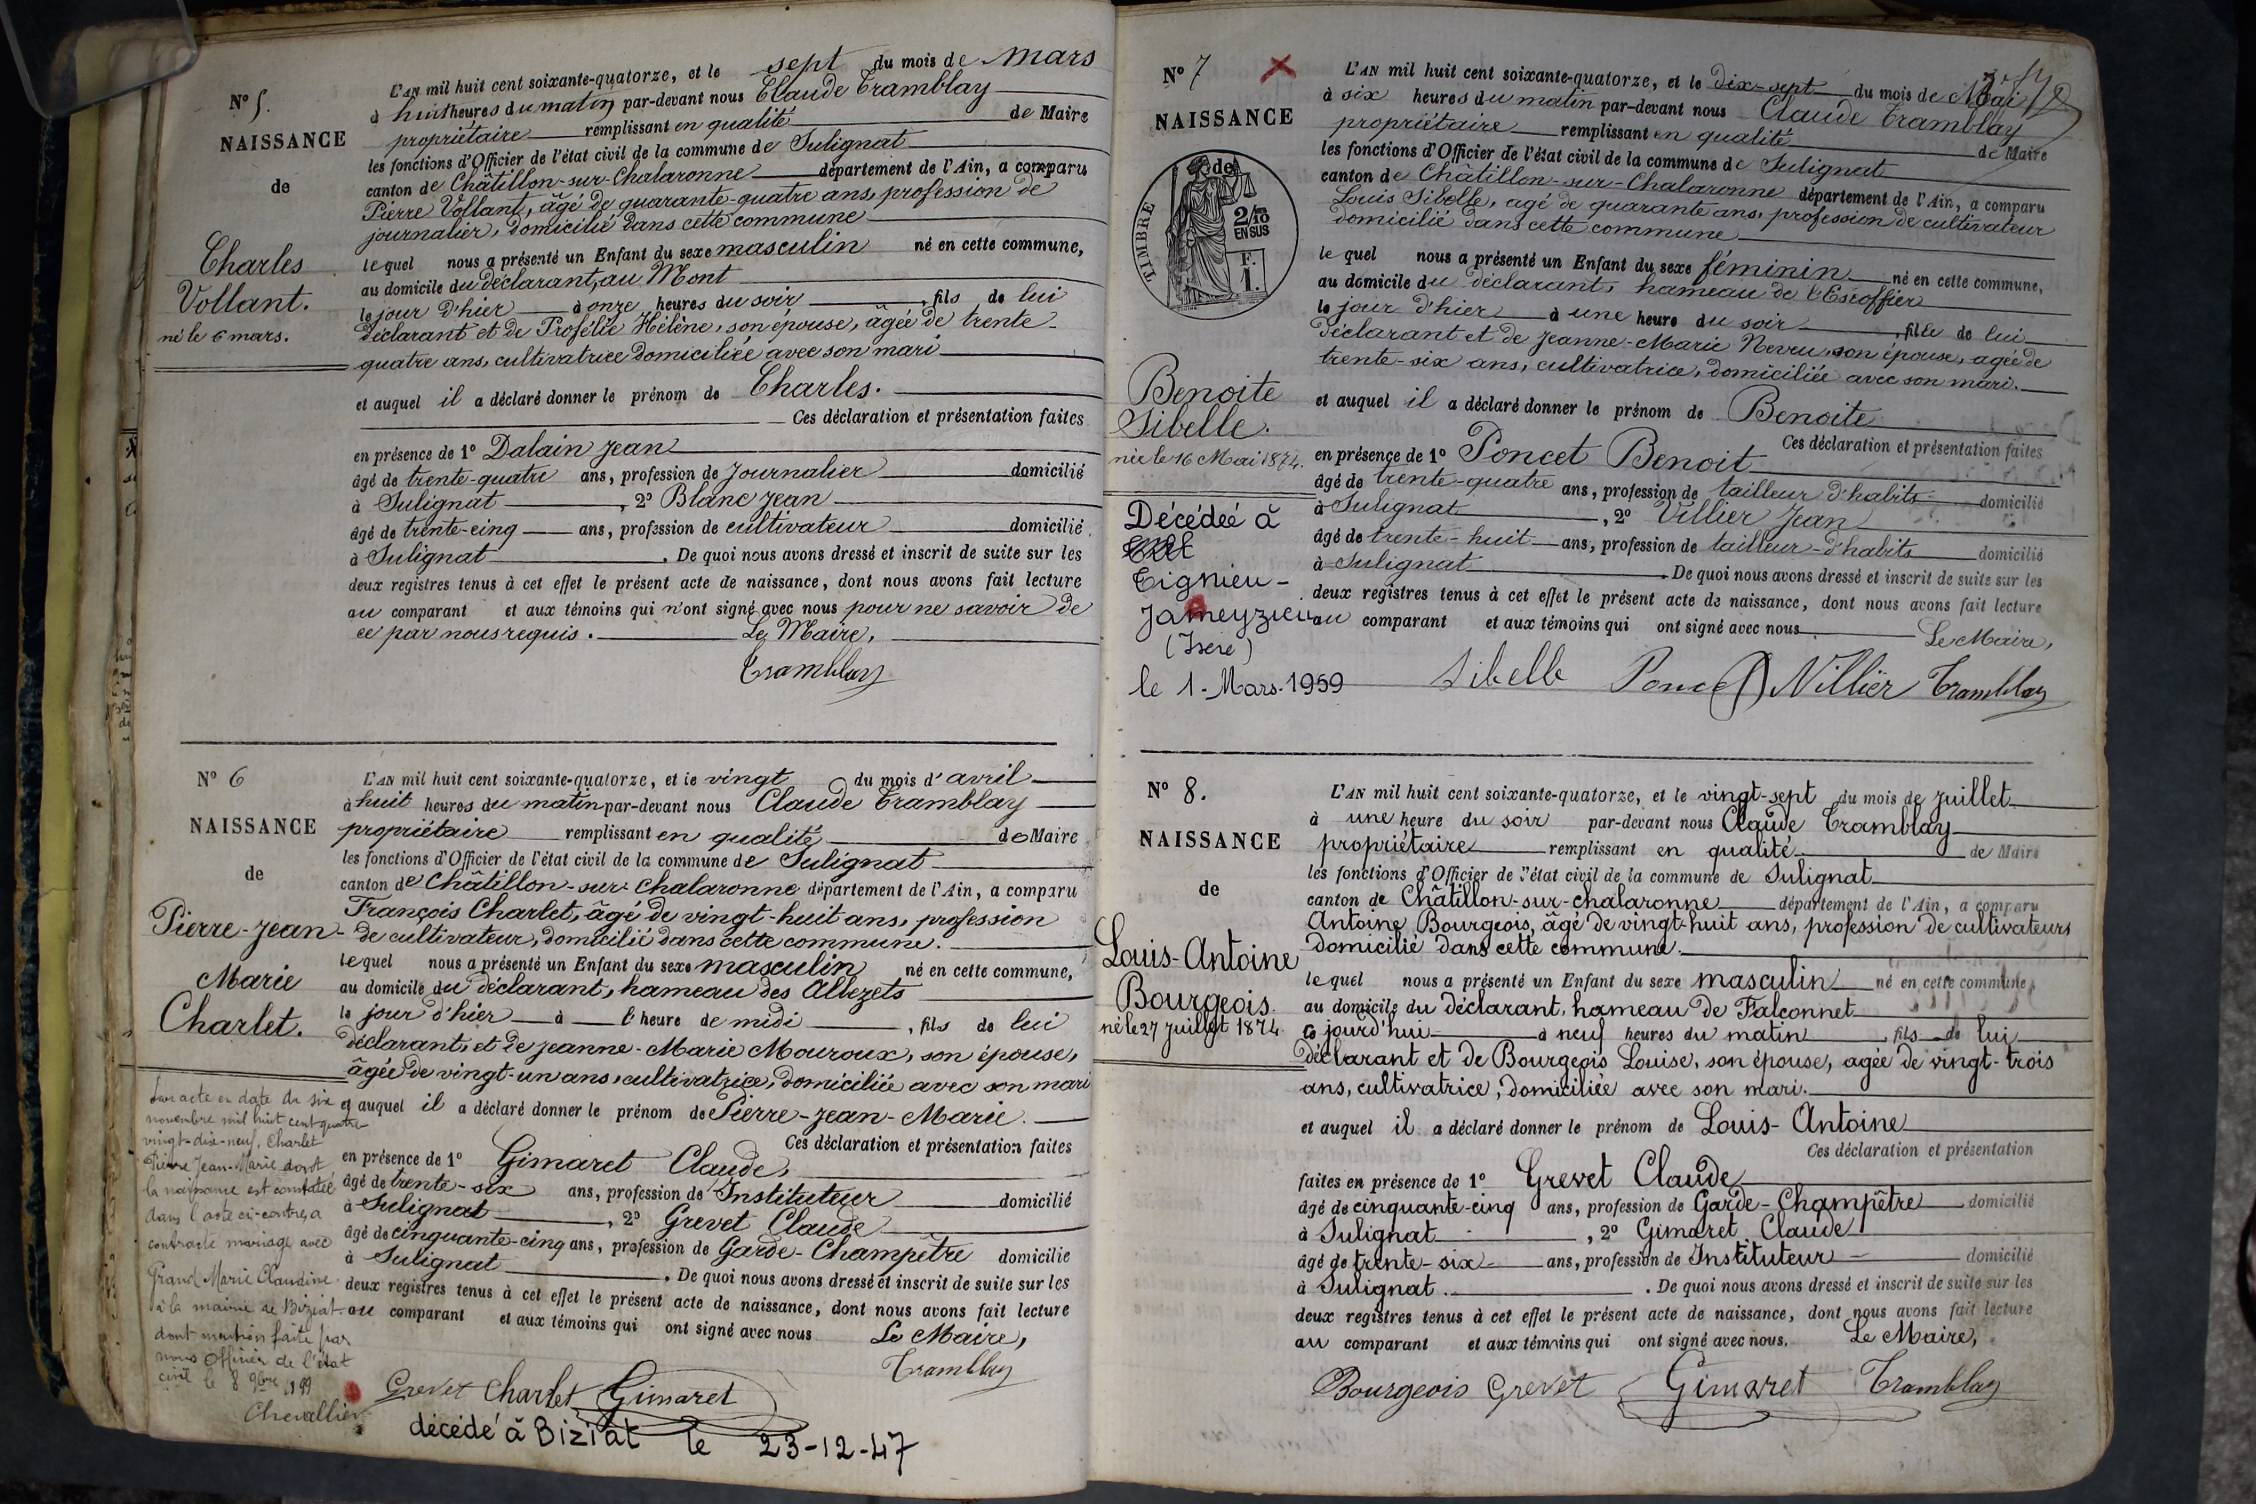 N° 5.
NAISSANCE
de
Charles
Vollant.
né le 6 mars.
L'AN mil huit cent soixante-quatorze, et le sept du mois de Mars
à huit heures du matin par-devant nous Claude Tramblay
propriétaire remplissant en qualité de Maire
les fonctions d'Officier de l'état civil de la commune de Sulignat
canton de Châtillon-sur-Chalaronne département de l'Ain, a comparu
Pierre Vollant, âgé de quarante-quatre ans, profession de
journalier, domicilié dans cette commune
lequel nous a présenté un Enfant du sexe masculin né en cette commune,
au domicile du déclarant, au Mont
le jour d'hier à onze heures du soir, fils de lui
déclarant et de Hélène, son épouse, âgée de trente-
quatre ans, cultivatrice domiciliée avec son mari
et auquel il a déclaré donner le prénom de Charles.
Ces déclaration et présentation faites
en présence de 1° Dalain Jean
âgé de trente-quatre ans, profession de Journalier domicilié
à Sulignat, 2° Blanc Jean
âgé de trente-cinq ans, profession de cultivateur domicilié
à Sulignat. De quoi nous avons dressé et inscrit de suite sur les
deux registres tenus à cet effet le présent acte de naissance, dont nous avons fait lecture
au comparant et aux témoins qui n'ont signé avec nous pour ne savoir de
ce par nous requis. Le Maire,
Tramblay
N° 6
NAISSANCE
de
Pierre-Jean-
Marie
Charlet.
L'AN mil huit cent soixante-quatorze, et le vingt du mois d'avril
à huit heures du matin par-devant nous Claude Tramblay
propriétaire remplissant en qualité de Maire
les fonctions d'Officier de l'état civil de la commune de Sulignat
canton de Châtillon-sur-Chalaronne département de l'Ain, a comparu
François Charlet, âgé de vingt-huit ans, profession
de cultivateur, domicilié dans cette commune.
lequel nous a présenté un Enfant du sexe masculin né en cette commune,
au domicile du déclarant, hameau des Allezets
le jour d'hier à l'heure de midi, fils de lui
déclarant, et de Jeanne-Marie Mouroux, son épouse,
âgée de vingt-un ans, cultivatrice, domiciliée avec son mari
et auquel il a déclaré donner le prénom de Pierre-Jean-Marie.
Ces déclaration et présentation faites
en présence de 1° Gimaret Claude,
âgé de trente-six ans, profession de Instituteur domicilié
à Sulignat, 2° Grevet Claude
âgé de cinquante-cinq ans, profession de Garde-Champêtre domicilié
à Sulignat. De quoi nous avons dressé et inscrit de suite sur les
deux registres tenus à cet effet le présent acte de naissance, dont nous avons fait lecture
au comparant et aux témoins qui ont signé avec nous Le Maire,
Grevet Charlet Gimaret Tramblay
décédé à Biziat le 23-12-47
Par acte en date du six
novembre mil huit cent quatre-
vingt-dix-neuf, Charlet
Pierre Jean-Marie dont
la naissance est constatée
dans l'acte ci-contre, a
contracté mariage avec
Grand Marie Claudine
à la mairie de Biziat
dont mention faite par
nous Officier de l'état
civil le 8 9bre 1899
Chevallier
N° 7
NAISSANCE
de
TIMBRE
2/10
EN SUS
F.
1.
Benoite
Sibelle.
née le 16 Mai 1874.
Décédée à
Tignieu-
Jameyzieu
(Isère)
le 1-Mars-1959
L'AN mil huit cent soixante-quatorze, et le dix-sept du mois de Mai
à six heures du matin par-devant nous Claude Tramblay
propriétaire remplissant en qualité de Maire
les fonctions d'Officier de l'état civil de la commune de Sulignat
canton de Châtillon-sur-Chalaronne département de l'Ain, a comparu
Louis Sibelle, âgé de quarante ans, profession de cultivateur
domicilié dans cette commune
lequel nous a présenté un Enfant du sexe féminin né en cette commune,
au domicile du déclarant, hameau de l'Escoffier
le jour d'hier à une heure du soir, fille de lui
déclarant et de Jeanne-Marie Neveu, son épouse, agée de
trente-six ans, cultivatrice, domiciliée avec son mari.
et auquel il a déclaré donner le prénom de Benoite
Ces déclaration et présentation faites
en présence de 1° Poncet Benoit
âgé de trente-quatre ans, profession de tailleur d'habits domicilié
à Sulignat, 2° Villier Jean
âgé de trente-huit ans, profession de tailleur-d'habits domicilié
à Sulignat. De quoi nous avons dressé et inscrit de suite sur les
deux registres tenus à cet effet le présent acte de naissance, dont nous avons fait lecture
au comparant et aux témoins qui ont signé avec nous. Le Maire,
Sibelle Poncet Villier Tramblay
N° 8.
NAISSANCE
de
Louis-Antoine
Bourgeois.
né le 27 juillet 1874
L'AN mil huit cent soixante-quatorze, et le vingt-sept du mois de juillet
à une heure du soir par-devant nous Claude Tramblay
propriétaire remplissant en qualité de Maire
les fonctions d'Officier de l'état civil de la commune de Sulignat
canton de Châtillon-sur-chalaronne département de l'Ain, a comparu
Antoine Bourgeois, âgé de vingt-huit ans, profession de cultivateurs
domicilié dans cette commune.
lequel nous a présenté un Enfant du sexe masculin né en cette commune,
au domicile du déclarant, hameau de Falconnet
ce jourd'hui à neuf heures du matin, fils de lui
déclarant et de Bourgeois Louise, son épouse, agée de vingt-trois
ans, cultivatrice, domiciliée avec son mari.
et auquel il a déclaré donner le prénom de Louis-Antoine
Ces déclaration et présentation
faites en présence de 1° Grevet Claude
âgé de cinquante-cinq ans, profession de Garde-Champêtre domicilié
à Sulignat, 2° Gimaret Claude
âgé de trente-six ans, profession de Instituteur domicilié
à Sulignat. De quoi nous avons dressé et inscrit de suite sur les
deux registres tenus à cet effet le présent acte de naissance, dont nous avons fait lecture
au comparant et aux témoins qui ont signé avec nous. Le Maire,
Bourgeois Grevet Gimaret Tramblay